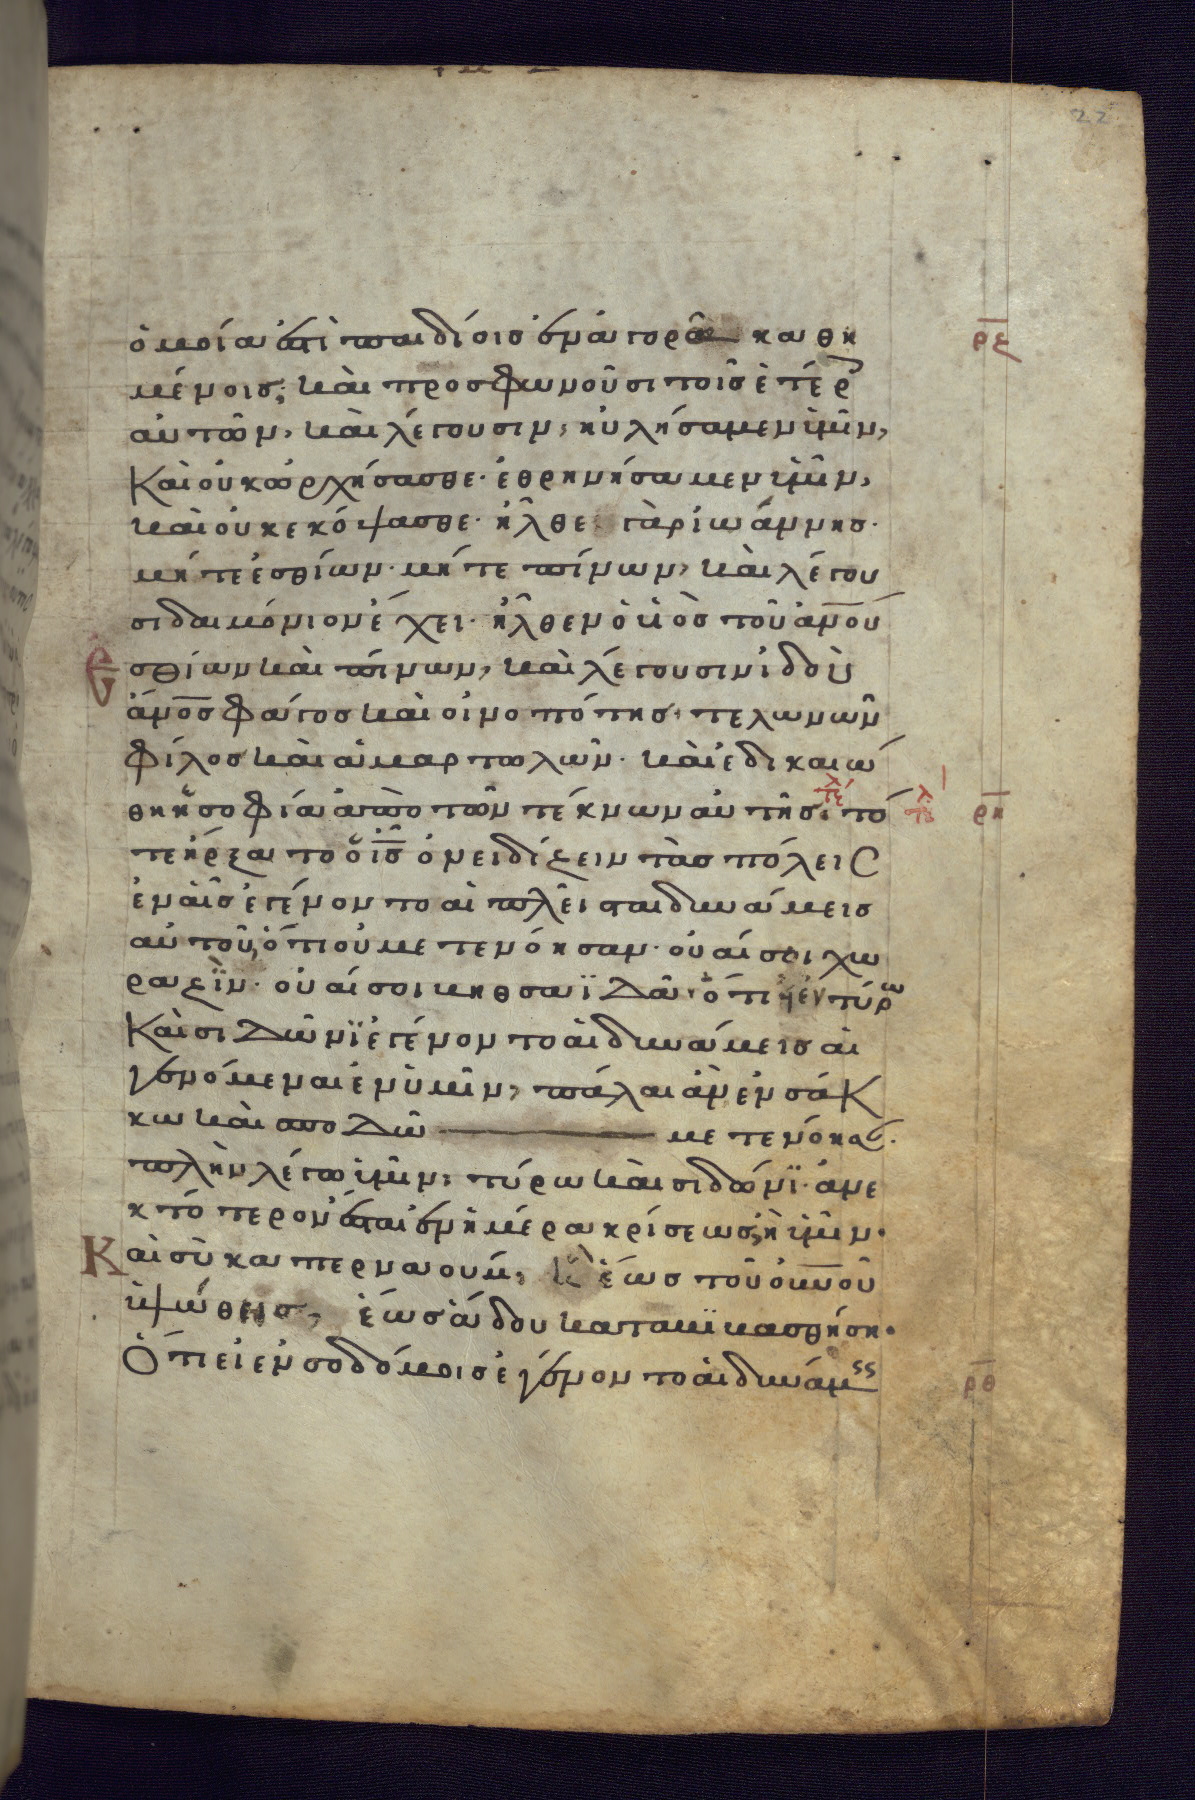 22
ὁμοία ἐστὶ παιδίοις ἐν ἀγορᾶ καθη
μένοις· καὶ προσφωνοῦσι τοῖς ἑτέρ
αὐτῶν, καὶ λέγουσιν, ηὐλήσαμεν ὑμῖν,
Καὶ οὐκ ὠρχήσασθε· ἐθρηνήσαμεν ὑμῖν,
καὶ οὐκ εκόψασθε· ἦλθε γὰρ ἰωάννης·
μήτε ἐσθίων· μήτε πίνων, καὶ λέγου
σι δαιμόνιον ἔχει· ἦλθεν ὁ υἱὸς τοῦ ἀν̅ου ἐ
σθίων καὶ πίνων, καὶ λέγουσιν ἰδοὺ
ἄν̅ος φάγος καὶ οἰνοπότης· τελωνῶν
φίλος καὶ ἁμαρτωλῶν· καὶ ἐδικαιώ
θη ἡ σοφία ἀπὸ τῶν τέκνων αὐτῆς· τό
τε ἤρξατο ὁ ι̅ς̅ ὀνειδίζειν τὰς πόλεις
ἐν αἷς ἐγένοντο αἱ πλεῖσται δυνάμεις
αὐτοῦ, ὅτι οὐ μετενόησαν· οὐαί σοι χω
ραζὶν· οὐαί σοι βηθσαϊδὰ· ὅτι ἠ ἐν τύρω
Καὶ σιδῶνϊ ἐγένοντο αἱ δυνάμεις αἱ
γενόμεναι ἐν ὑμῖν, πάλαι ἂν ἐν σάκ
κω καὶ σποδῶ μετενόησ·
πλὴν λέγω ὑμῖν, τύρω καὶ σιδῶνϊ· ἀνε
κτότερον ἔσται ἐν ἡμέρα κρίσεως, ἢ ὑμῖν·
Καὶ σὺ καπερναουμ, ἡ ἕως τοῦ οὐ̅νοῦ
ὑψώθεισ, ἕως ἅδου καταβϊβασθήση·
Ὅτι εἰ ἐν σοδόμοις ἐγένοντο αἱ δυνάμ
ρζ
ρη
ρθ